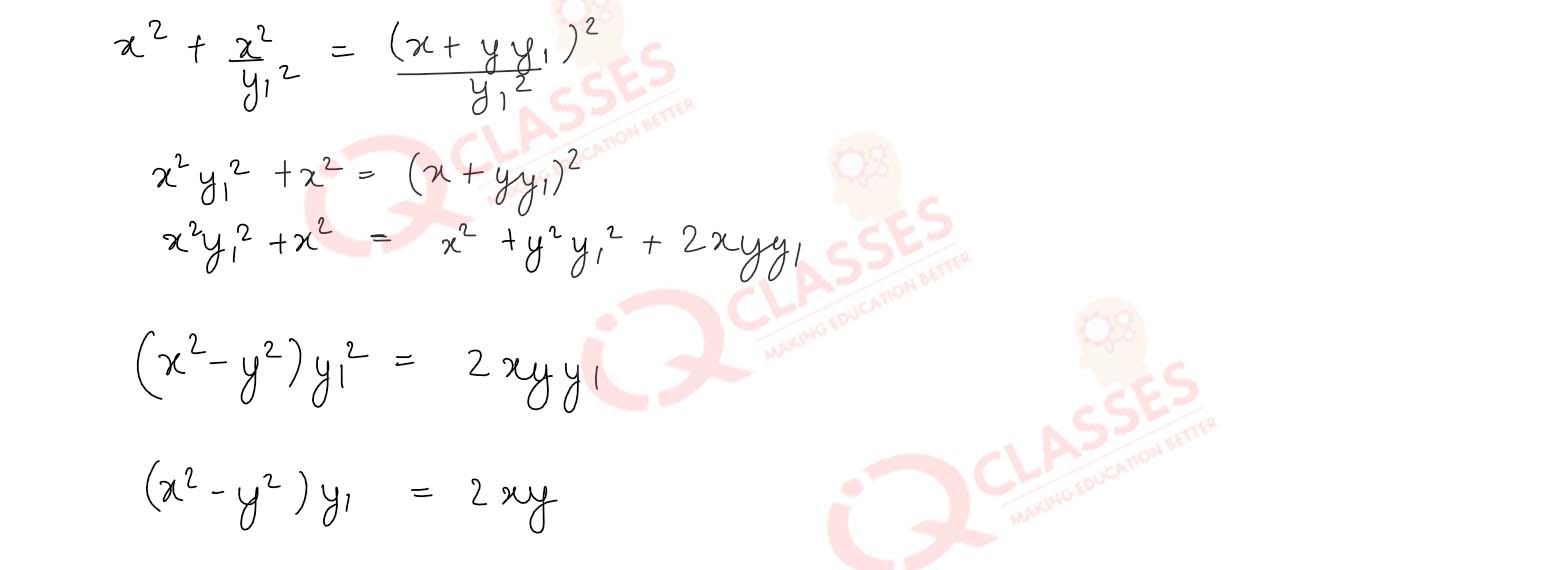 x² + x²/y₁² = (x + y y₁)²/y₁²
x² y₁² + x² = (x + yy₁)²
x²y₁² + x² = x² + y² y₁² + 2xyy₁
(x² - y²) y₁² = 2xy y₁
(x² - y²) y₁ = 2xy
IQ CLASSES
MAKING EDUCATION BETTER
IQ CLASSES
MAKING EDUCATION BETTER
IQ CLASSES
MAKING EDUCATION BETTER